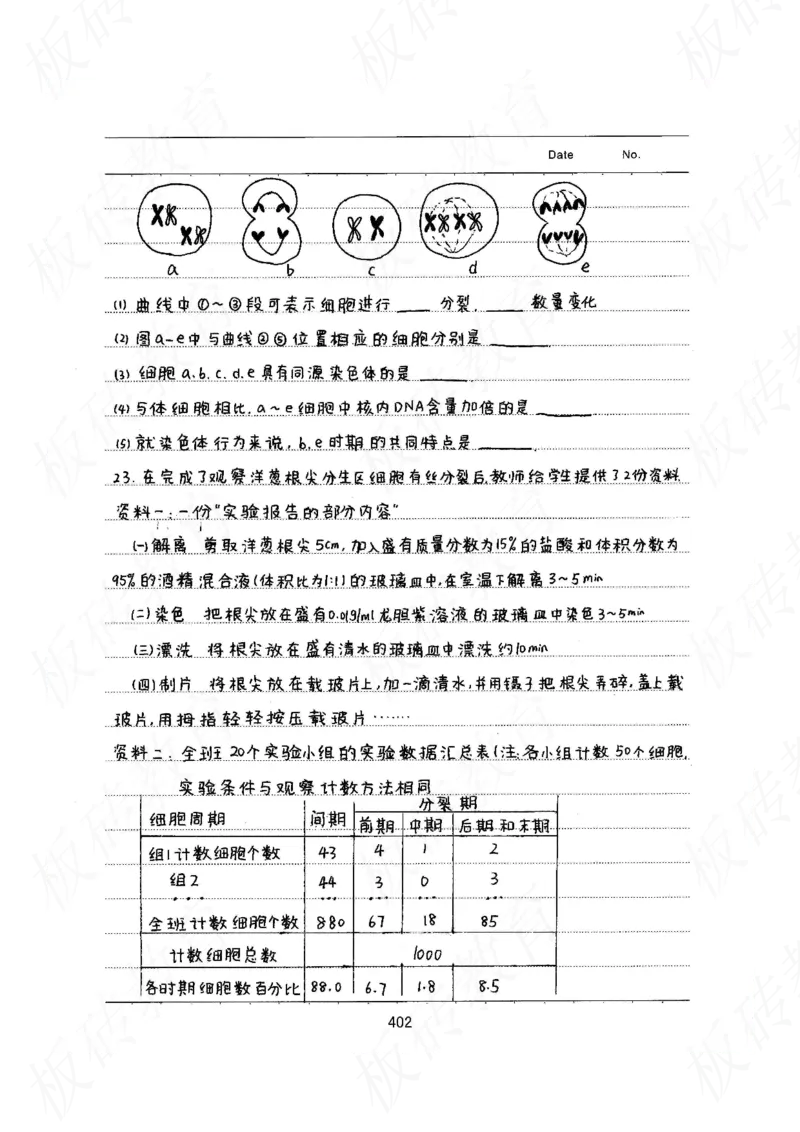 Date No.
a b c d e
(1) 曲线中①~③段可表示细胞进行____分裂,____数量变化
(2) 图a-e中与曲线②⑤位置相应的细胞分别是____
(3) 细胞a.b.c.d.e具有同源染色体的是____
(4) 与体细胞相比,a~e细胞中核内DNA含量加倍的是____
(5) 就染色体行为来说,b.e时期的共同特点是____.
23.在完成了观察洋葱根尖分生区细胞有丝分裂后,教师给学生提供了2份资料
资料一:一份"实验报告的部分内容"
(一)解离 剪取洋葱根尖5cm,加入盛有质量分数为15%的盐酸和体积分数为
95%的酒精混合液(体积比为1:1)的玻璃皿中,在室温下解离3~5min
(二)染色 把根尖放在盛有0.01g/ml龙胆紫溶液的玻璃皿中染色3~5min
(三)漂洗 将根尖放在盛有清水的玻璃皿中漂洗约10min
(四)制片 将根尖放在载玻片上,加一滴清水,并用镊子把根尖弄碎,盖上载
玻片,用拇指轻轻按压载玻片……
资料二:全班20个实验小组的实验数据汇总表(注:各小组计数50个细胞,
实验条件与观察计数方法相同
细胞周期 间期 分裂期
前期 中期 后期和末期
组1计数细胞个数 43 4 1 2
组2 44 3 0 3
... ... ... ... ...
全班计数细胞个数 880 67 18 85
计数细胞总数 1000
各时期细胞数百分比 88.0 6.7 1.8 8.5
402
板砖教育